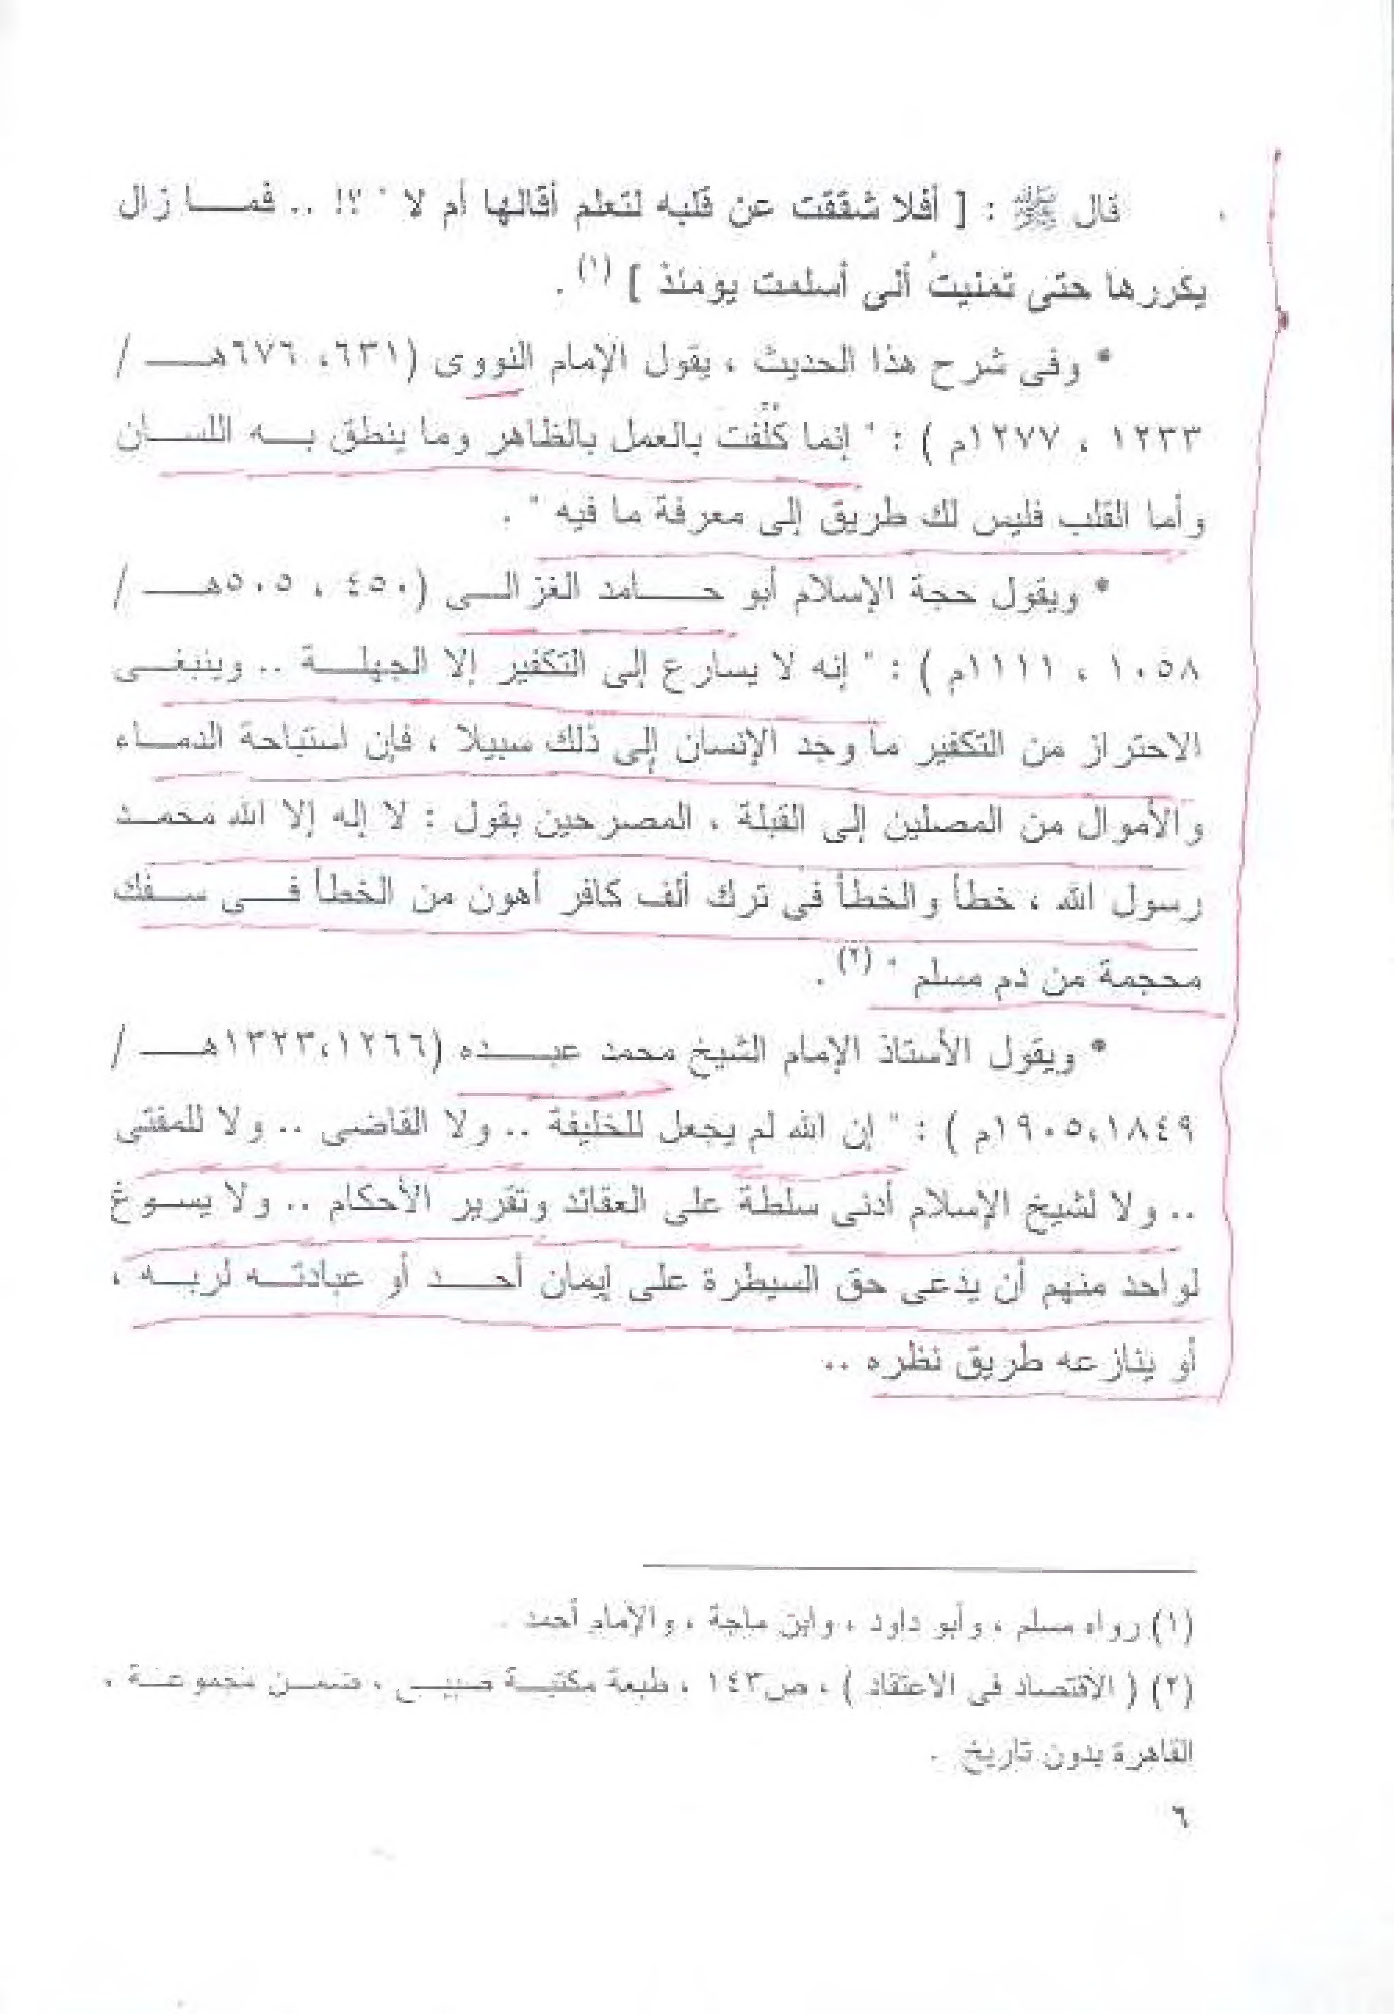 قال ﷺ : [ أفلا شققت عن قلبه لتعلم أقالها أم لا " ؟! .. فمـــا زال
يكررها حتى تمنيتُ أنى أسلمت يومئذ ] (١) .
* وفى شرح هذا الحديث ، يقول الإمام النووى (٦٣١، ٦٧٦هـــ /
١٢٣٣ ، ١٢٧٧م ) : " إنما كُلِّفت بالعمل بالظاهر وما ينطق بـــه اللســـان
وأما القلب فليس لك طريق إلى معرفة ما فيه " .
* ويقول حجة الإسلام أبو حـــامد الغزالـــى (٤٥٠ ، ٥٠٥هـــ /
١٠٥٨ ، ١١١١م ) : " إنه لا يسارع إلى التكفير إلا الجهلـــة .. وينبغـــى
الاحتراز من التكفير ما وجد الإنسان إلى ذلك سبيلا ، فإن استباحة الدمـــاء
والأموال من المصلين إلى القبلة ، المصرحين بقول : لا إله إلا الله محمـــد
رسول الله ، خطأ والخطأ فى ترك ألف كافر أهون من الخطأ فـــى ســـفك
محجمة من دم مسلم " (٢) .
* ويقول الأستاذ الإمام الشيخ محمد عبـــده (١٢٦٦،١٣٢٣هـــ /
١٨٤٩،١٩٠٥م ) : " إن الله لم يجعل للخليفة .. ولا القاضى .. ولا للمفتى
.. ولا لشيخ الإسلام أدنى سلطة على العقائد وتقرير الأحكام .. ولا يســـوغ
لواحد منهم أن يدعى حق السيطرة على إيمان أحـــد أو عبادتـــه لربـــه ،
أو ينازعه طريق نظره ..
(١) رواه مسلم ، وأبو داود ، وابن ماجة ، والإمام أحمد .
(٢) ( الاقتصاد فى الاعتقاد ) ، ص١٤٣ ، طبعة مكتبـــة صبيـــح ، ضمـــن مجموعـــة ،
القاهرة بدون تاريخ .
٦